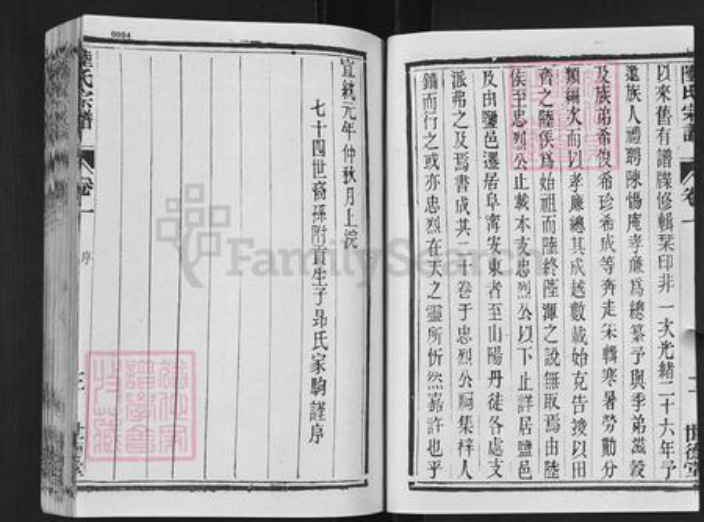 陸氏宗譜
卷一
以來舊有譜牒修輯栞印非一次光緒二十六年予
邀族人禮聘陳惕庵孝廉爲總纂予與季弟滋穀
及族弟希俊希珍希成等奔走采輯寒暑勞勩分
類編次而以孝廉總其成越數載始克告竣以田
齊之陸侯爲始祖而陸終陸渾之說無取焉由陸
侯至忠烈公止載本支忠烈公以下止詳居鹽邑
及由鹽邑遷居阜寧安東者至山陽丹徒各處支
派弗之及焉書成共二十卷于忠烈公祠集梓人
鐫而行之或亦忠烈在天之靈所忻然嘉許也乎
宣統元年仲秋月上浣
七十四世裔孫附貢生子昻氏家駒謹序
陸氏宗譜
卷一
序
三
0004
FamilySearch